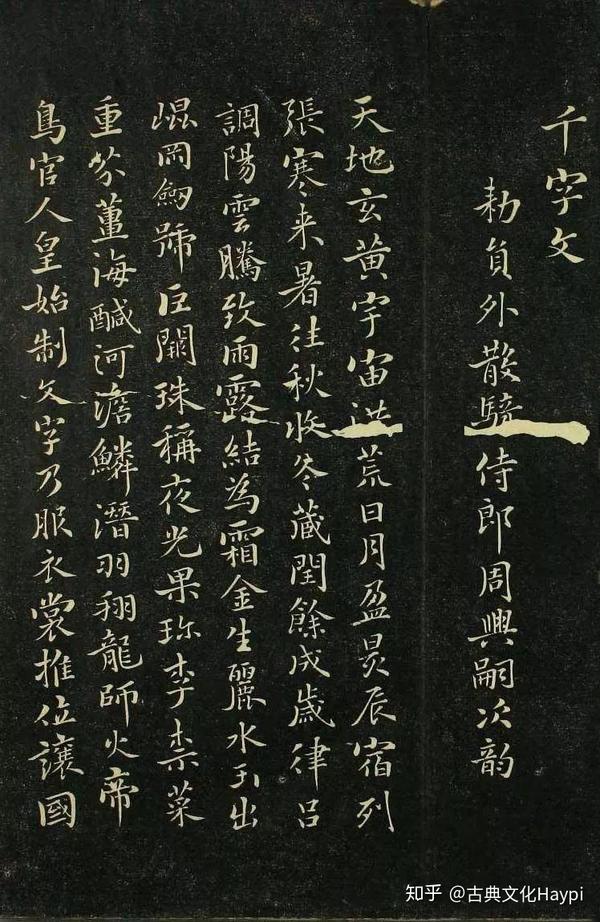 千字文
勅員外散騎侍郎周興嗣次韵
天地玄黄宇宙洪荒日月盈昃辰宿列
張寒来暑往秋收冬蔵閏餘成歲律吕
調陽雲騰致雨露結為霜金生麗水玉出
崐岡劒號巨闕珠稱夜光果珎李柰菜
重芥薑海醎河澹鱗潛羽翔龍師火帝
鳥官人皇始制文字乃服衣裳推位讓國
知乎 @古典文化Haypi